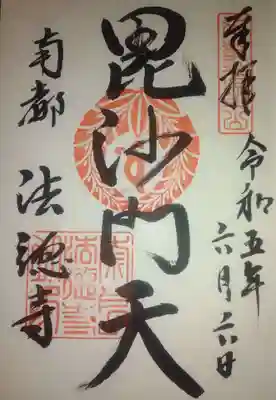 奉拝
令和五年六月六日
毘沙門天
南都 法徳寺